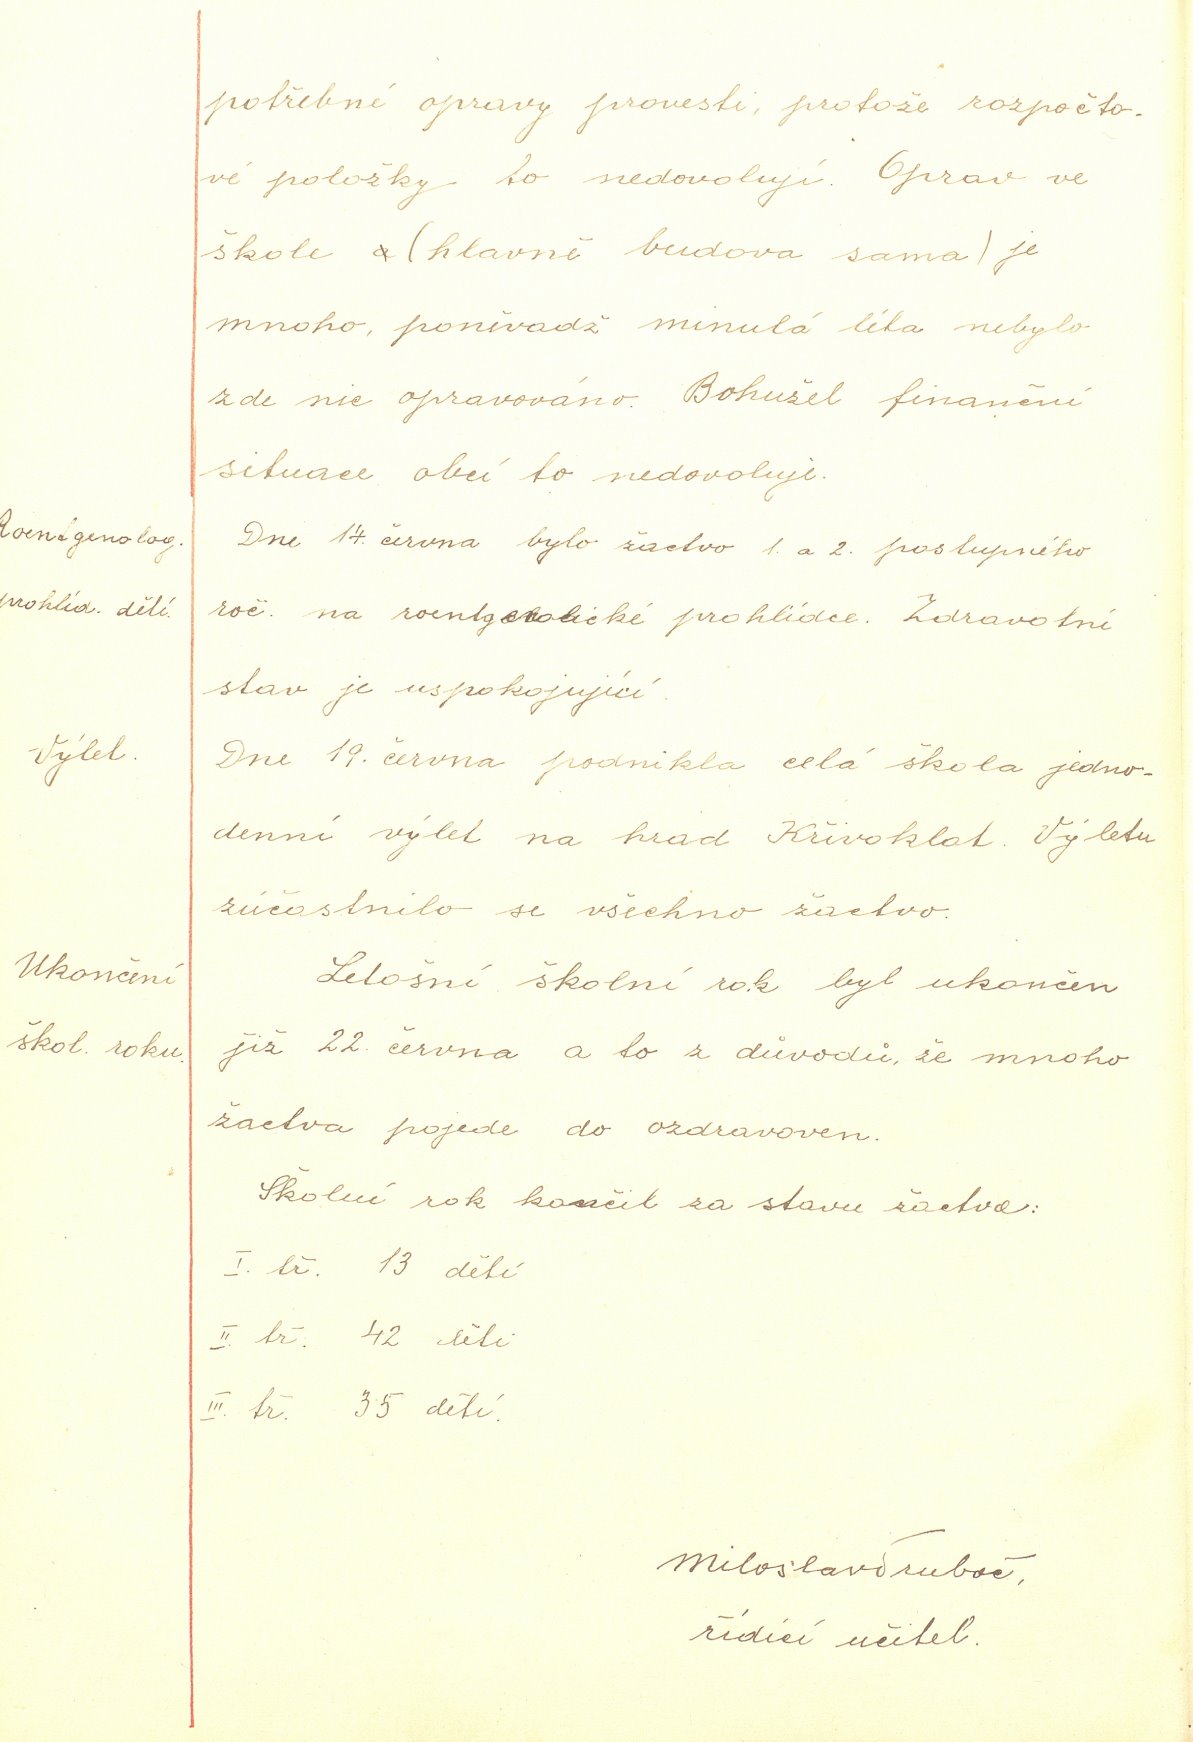 potřebné opravy provésti, protože rozpočto-
vé položky to nedovolují. Oprav ve
škole (hlavně budova sama) je
mnoho, poněvadž minulá léta nebylo
zde nic opravováno. Bohužel finanční
situace obcí to nedovoluje.
Roentgenolog. Dne 14. června bylo žactvo 1. a 2. postupného
prohlíd. dětí. roč. na prohlídce. Zdravotní
stav je uspokojující.
Výlet. Dne 19. června podnikla celá škola jedno-
denní výlet na hrad Křivoklat. Výletu
zúčastnilo se všechno žactvo.
Ukončení Letošní školní rok byl ukončen
škol. roku. již 22. června a to z důvodů, že mnoho
žactva pojede do ozdravoven.
Školní rok končil za stavu žactva:
I. tř. 13 dětí
II. tř. 42 děti
III. tř. 35 dětí.
Miloslav
řídící učitel.